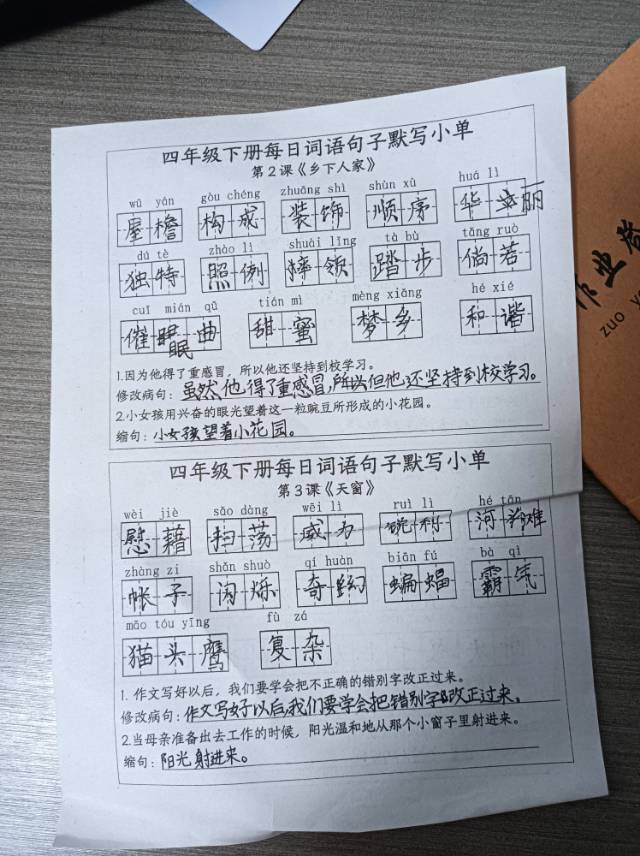 四年级下册每日词语句子默写小单
第2课《乡下人家》
wū yán gòu chéng zhuāng shì shùn xù huá lì
屋檐 构成 装饰 顺序 华丽
dú tè zhào lì shuài lǐng tà bù tǎng ruò
独特 照例 率领 踏步 倘若
cuī mián qǔ tián mì mèng xiāng hé xié
催眠曲 甜蜜 梦乡 和谐
1.因为他得了重感冒，所以他还坚持到校学习。
修改病句：虽然他得了重感冒，但他还坚持到校学习。
2.小女孩用兴奋的眼光望着这一粒豌豆所形成的小花园。
缩句：小女孩望着小花园。
四年级下册每日词语句子默写小单
第3课《天窗》
wèi jiè sǎo dàng wēi lì ruì lì hé tān
慰藉 扫荡 威力 锐利 河滩
zhàng zi shǎn shuò qí huàn biān fú bà qì
帐子 闪烁 奇幻 蝙蝠 霸气
māo tóu yīng fù zá
猫头鹰 复杂
1. 作文写好以后，我们要学会把不正确的错别字改正过来。
修改病句：作文写好以后，我们要学会把错别字改正过来。
2.当母亲准备出去工作的时候，阳光温和地从那个小窗子里射进来。
缩句：阳光射进来。
作业
zuo